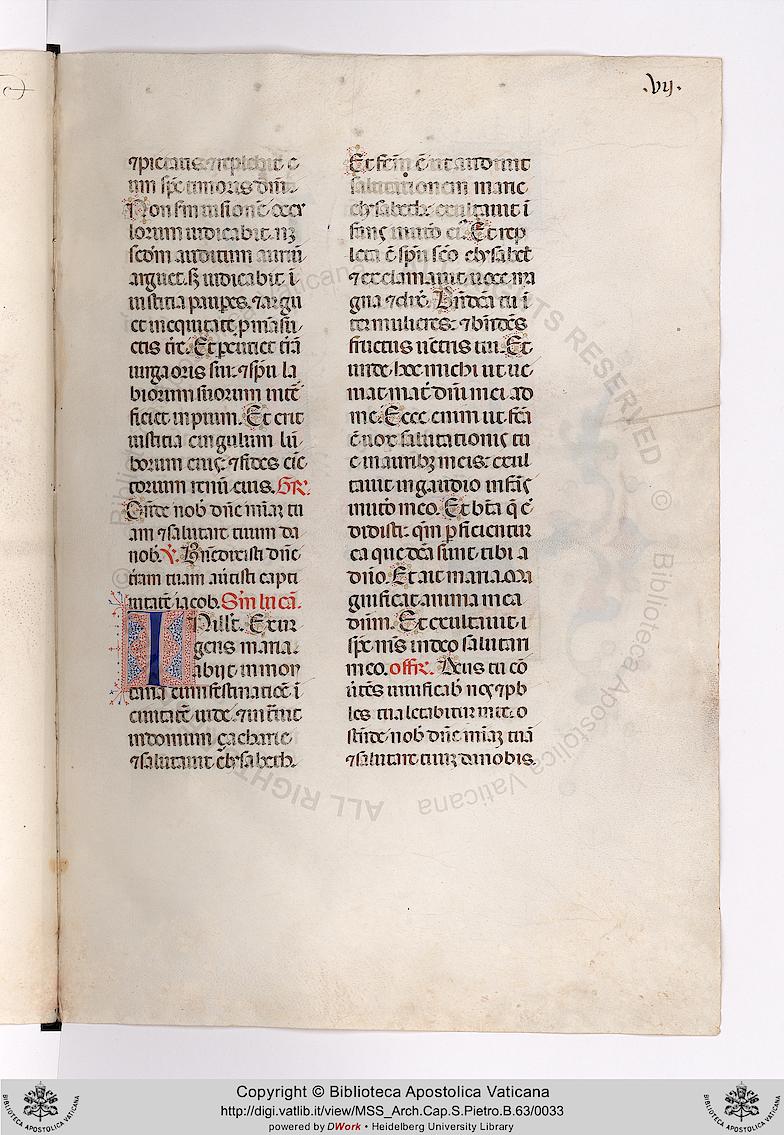 .vij.
⁊pietatis. ⁊replebit e
um sp̄s timoris dn̄i.
Non scd̄m uisionē occu
lorum iudicabit. nec
scd̄m auditum auriū
arguet. sꝫ iudicabit ī
iusticia pauperes. ⁊argu
et inequitate p̄ māsu
etis tr̄e. Et percutiet tr̄ā
uirga oris sui. ⁊sp̄u la
biorum suorum inter
ficiet inpium. Et erit
iusticia cingulum lū
borum eius. ⁊fides cīc
torium renū eius. GR.
Ostende nob̄ dn̄e mīaꝫ tu
am ⁊salutare tuum da
nob̄. V. Benedixisti dn̄e
terram tuam auertisti capti
uitatē iacob. Scd̄m lucā.
In illis. Exur
gens maria.
abijt in mon
tana cum festinatiōe ī
ciuitatē iude. ⁊intrauit
indomum çacharie
⁊salutauit elysabeth.
Et factum ē ut audiuit
salutationem marie
elysabeth. exultauit ī
fans in utero ei. Et rep
leta ē sp̄u sc̄o elysabet
⁊exclamauit uoce ma
gna ⁊dix̄. Bn̄dc̄a tu ī
ter mulieres. ⁊bn̄dc̄s
fructus uentris tui. Et
unde hoc michi ut ue
niat mat̄ dn̄i mei ad
me. Ecce enim ut fc̄a
ē uox salutationis tu
e in auribꝫ meis. exul
tauit ingaudio infans
inutero meo. Et bt̄a q̄ c̄
didisti. qm̄ p̄ficientur
ea que dc̄a sunt tibi a
dn̄o. Et ait maria. Ma
gnificat anima mea
dn̄m. Et exultauit ī
sp̄s m̄s indeo salutari
meo. offr̄. Deus tu cō
uertēs uiuificab̄ nos ⁊pb
les tua letabitur inte. o
stende nob̄ dn̄e mīaꝫ tuā
⁊salutare tuuꝫ da nobis.
Copyright © Biblioteca Apostolica Vaticana
http://digi.vatlib.it/view/MSS_Arch.Cap.S.Pietro.B.63/0033
powered by DWork • Heidelberg University Library